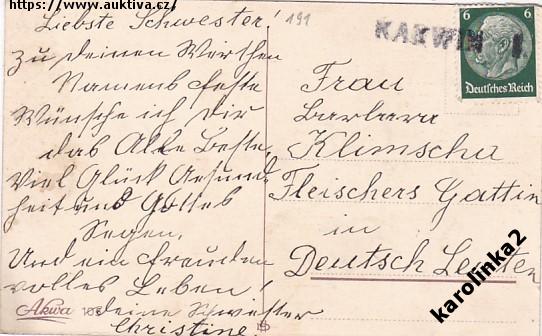 https://www.auktiva.cz/
Liebste Schwester! 191
Zu deinen Werthen
Namensfeste
Wünsche ich Dir
das Alle Beste,
Viel Glück Gesund-
heit und Gottes
Segen,
Und ein freuden
volles Leben!
deine Schwester
Christine
Akwa
KARWIN 1
6 6
Deutsches Reich
Frau
Barbara
Klimscha
Fleischers Gattin
in
Deutsch
karolinka2